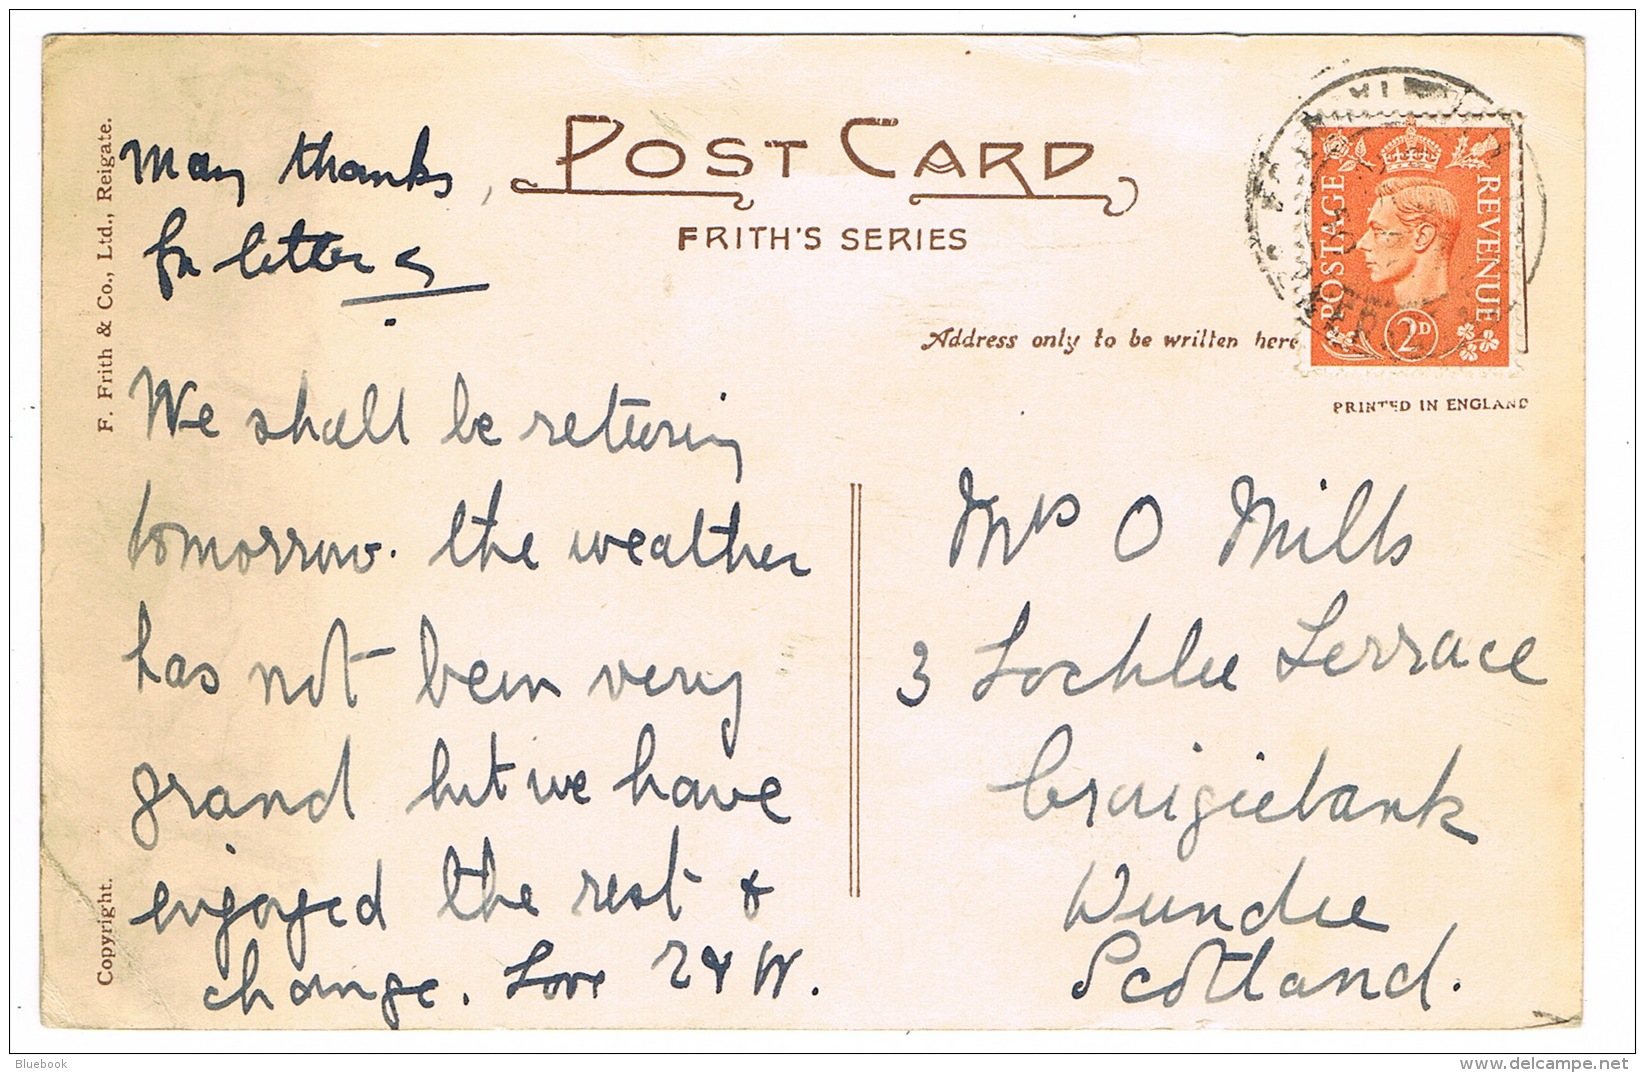 POST CARD
FRITH'S SERIES
Many thanks
for letters
Address only to be written here
POSTAGE
REVENUE
2D
PRINTED IN ENGLAND
F. Frith & Co., Ltd., Reigate.
Copyright.
We shall be returning
tomorrow. the weather
has not been very
grand but we have
enjoyed the rest &
change. Love
Mrs O Mills
3 Lochlee Terrace
Craigiebank
Dundee
Scotland.
Bluebook
delcampe.net